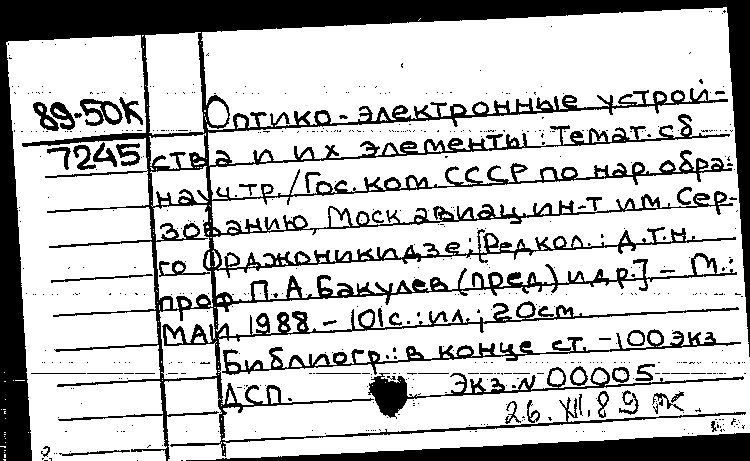 89-50К Оптико-электронные устрой-
7245 ства и их элементы: Темат. сб.
науч. тр. / Гос. ком. СССР по нар. обра-
зованию, Моск. авиац. ин-т им. Сер-
го Орджоникидзе; [Редкол.: д.т.н.
проф. П. А. Бакулев (пред.) и др.] – М.:
МАИ, 1988. – 101с.: ил.; 20см.
Библиогр.: в конце ст. – 100 экз
ДСП. Экз. № 00005.
26. XII. 89